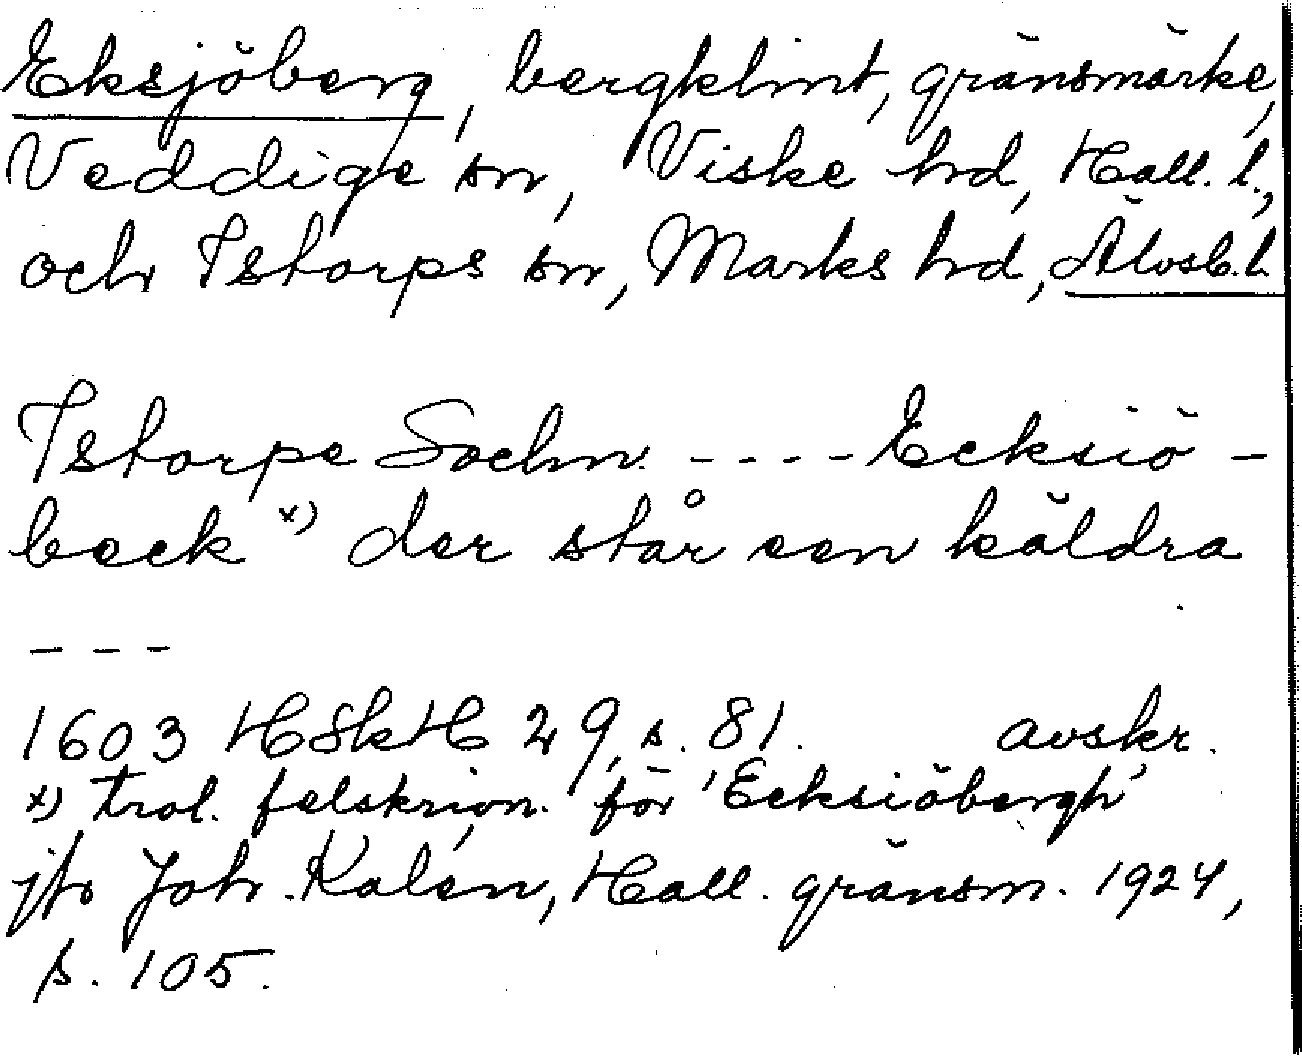 Eksjöberg, bergklint, gränsmärke,
Veddige sn, Viske hd, Hall. l.,
och Istorps sn, Marks hd, Älvsb. l.
Istorpe Sochn. ---- Ecksiö-
beck x) der står een käldra
---
1603 HSkH 29, s. 81. avskr.
x) trol. felskrivn. för 'Ecksiöbergh'
jfr Joh. Kalén, Hall. gränsm. 1924,
s. 105.